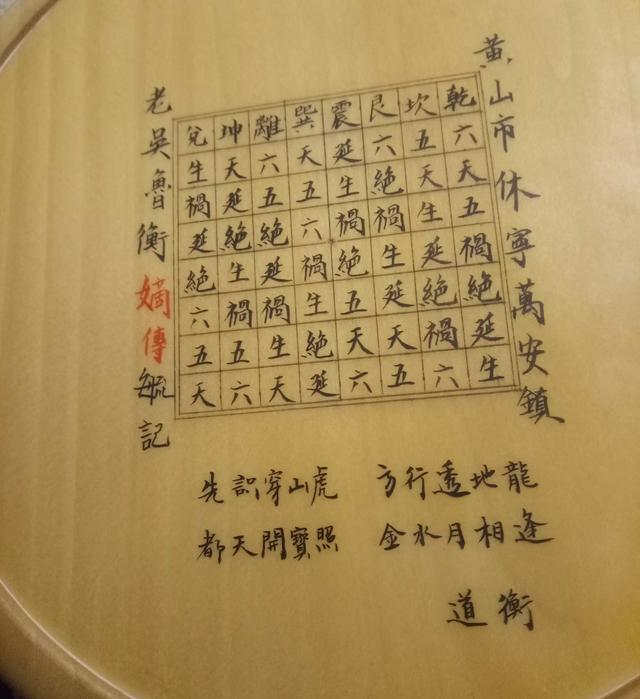 黄山市休寧萬安鎮
乾六天五禍絕延生
坎五天生延絕禍六
艮六絕禍生延天五
震延生禍絕五天六
巽天五六禍生絕延
離六五絕延禍生天
坤天延絕生禍五六
兌生禍延絕六五天
老吳魯衡嫡傳毓記
先識穿山虎 方行透地龍
都天開寶照 金水月相逢
道衡